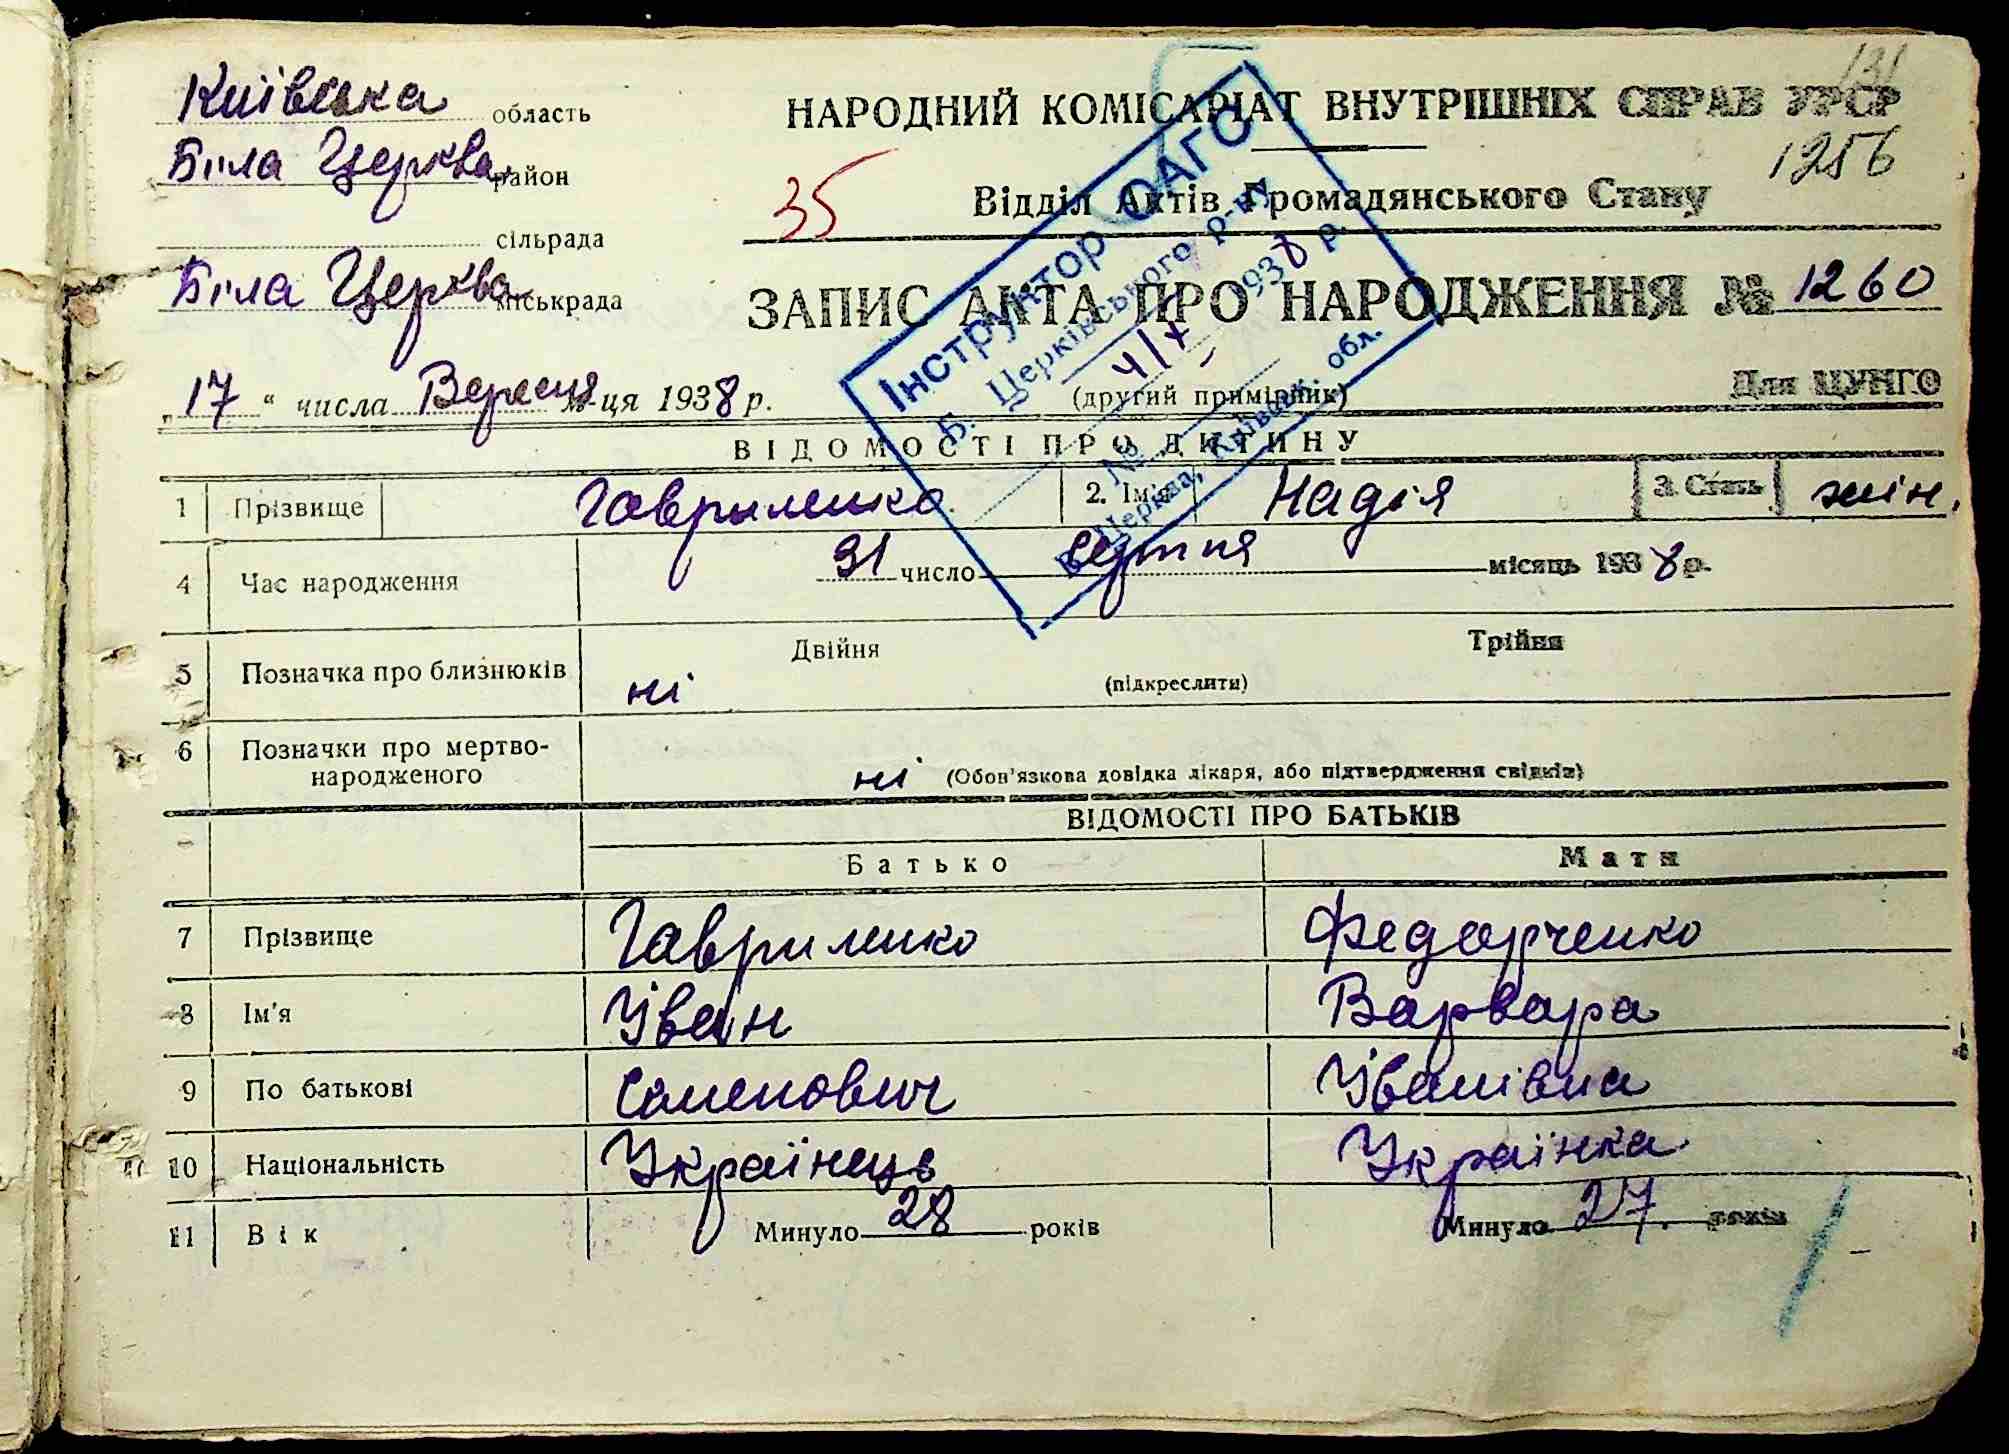 131
Київська область
НАРОДНИЙ КОМІСАРІАТ ВНУТРІШНІХ СПРАВ УРСР
1256
Біла Церква район
35
Відділ Актів Громадянського Стану
сільрада
Біла Церква міськрада
ЗАПИС АКТА ПРО НАРОДЖЕННЯ № 1260
„17“ числа Вересня м-ця 1938 р.
(другий примірник)
Для ЦУНГО
Інструктор ОАГС
Б. Церківського р-ну
4/X 1938 р.
№
Б. Церква, Київськ. обл.
ВІДОМОСТІ ПРО ДИТИНУ
1 Прізвище Гавриленко 2. Ім'я Надія 3. Стать жін.
4 Час народження 31 число серпня місяць 1938 р.
5 Позначка про близнюків ні Двійня Трійня
(підкреслити)
6 Позначки про мертво-
народженого ні (Обов'язкова довідка лікаря, або підтвердження свідків)
ВІДОМОСТІ ПРО БАТЬКІВ
Батько Мати
7 Прізвище Гавриленко Федорченко
8 Ім'я Іван Варвара
9 По батькові Семенович Іванівна
10 Національність Українець Українка
11 Вік Минуло 28 років Минуло 27. років